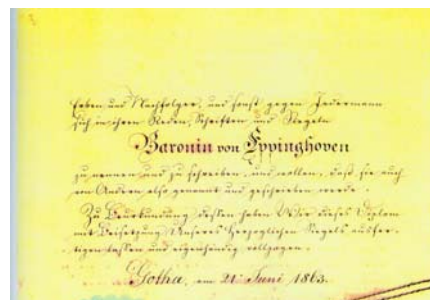 Erben und Nachfolger, und sonst gegen Jedermann
sich in ihren Reden, Schriften und Siegeln
Baronin von Eppinghoven
zu nennen und zu schreiben, und wollen, daß sie auch
von Andern also genannt und geschrieben werde.
Zu Beurkundung dessen haben Wir dieses Diplom
mit Beisetzung Unseres Herzoglichen Siegels ausfer-
tigen lassen und eigenhändig vollzogen.
Gotha, am 21 Juni 1863.